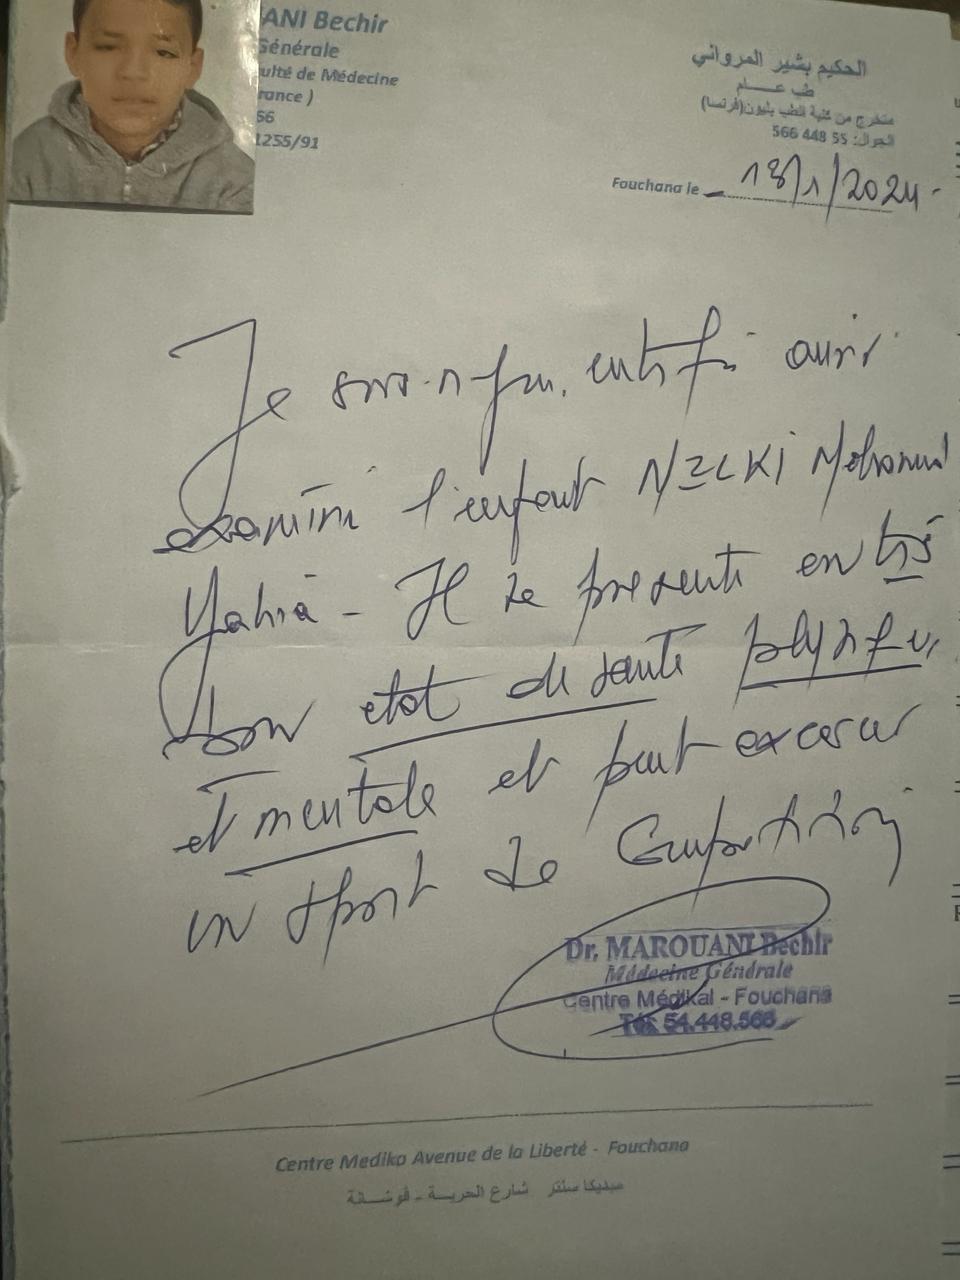 ANI Bechir
Générale
ulté de Médecine
rance )
66
1255/91
الحكيم بشير المرواني
طب عـــــام
متخرج من كلية الطب بليون(فرنسا)
الجوال: 55 448 566
Fouchana le 18/1/2024
Je
examiné l'enfant Mohamed
Yahia - Il se presente en très
bon etat de santé
et mentale et peut excercer
un sport de Competition
Dr. MAROUANI Bechir
Médecine Générale
Centre Médikal - Fouchana
Tél: 54.448.566
Centre Medika Avenue de la Liberté - Fouchana
ميديكا سنتر شارع الحرية - فوشانة